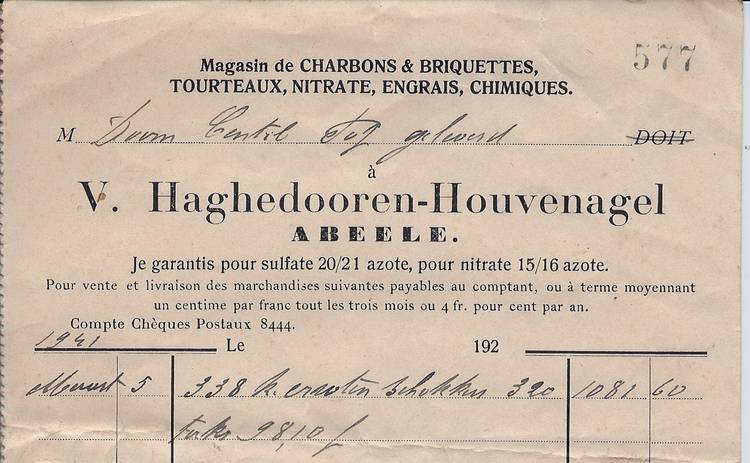 577
Magasin de CHARBONS & BRIQUETTES,
TOURTEAUX, NITRATE, ENGRAIS, CHIMIQUES.
M Doorn geleverd DOIT
à
V. Haghedooren-Houvenagel
ABEELE.
Je garantis pour sulfate 20/21 azote, pour nitrate 15/16 azote.
Pour vente et livraison des marchandises suivantes payables au comptant, ou à terme moyennant
un centime par franc tout les trois mois ou 4 fr. pour cent par an.
Compte Chèques Postaux 8444.
1941 Le 192
Maart 5 338 k. 320 1081 60
98,10 f